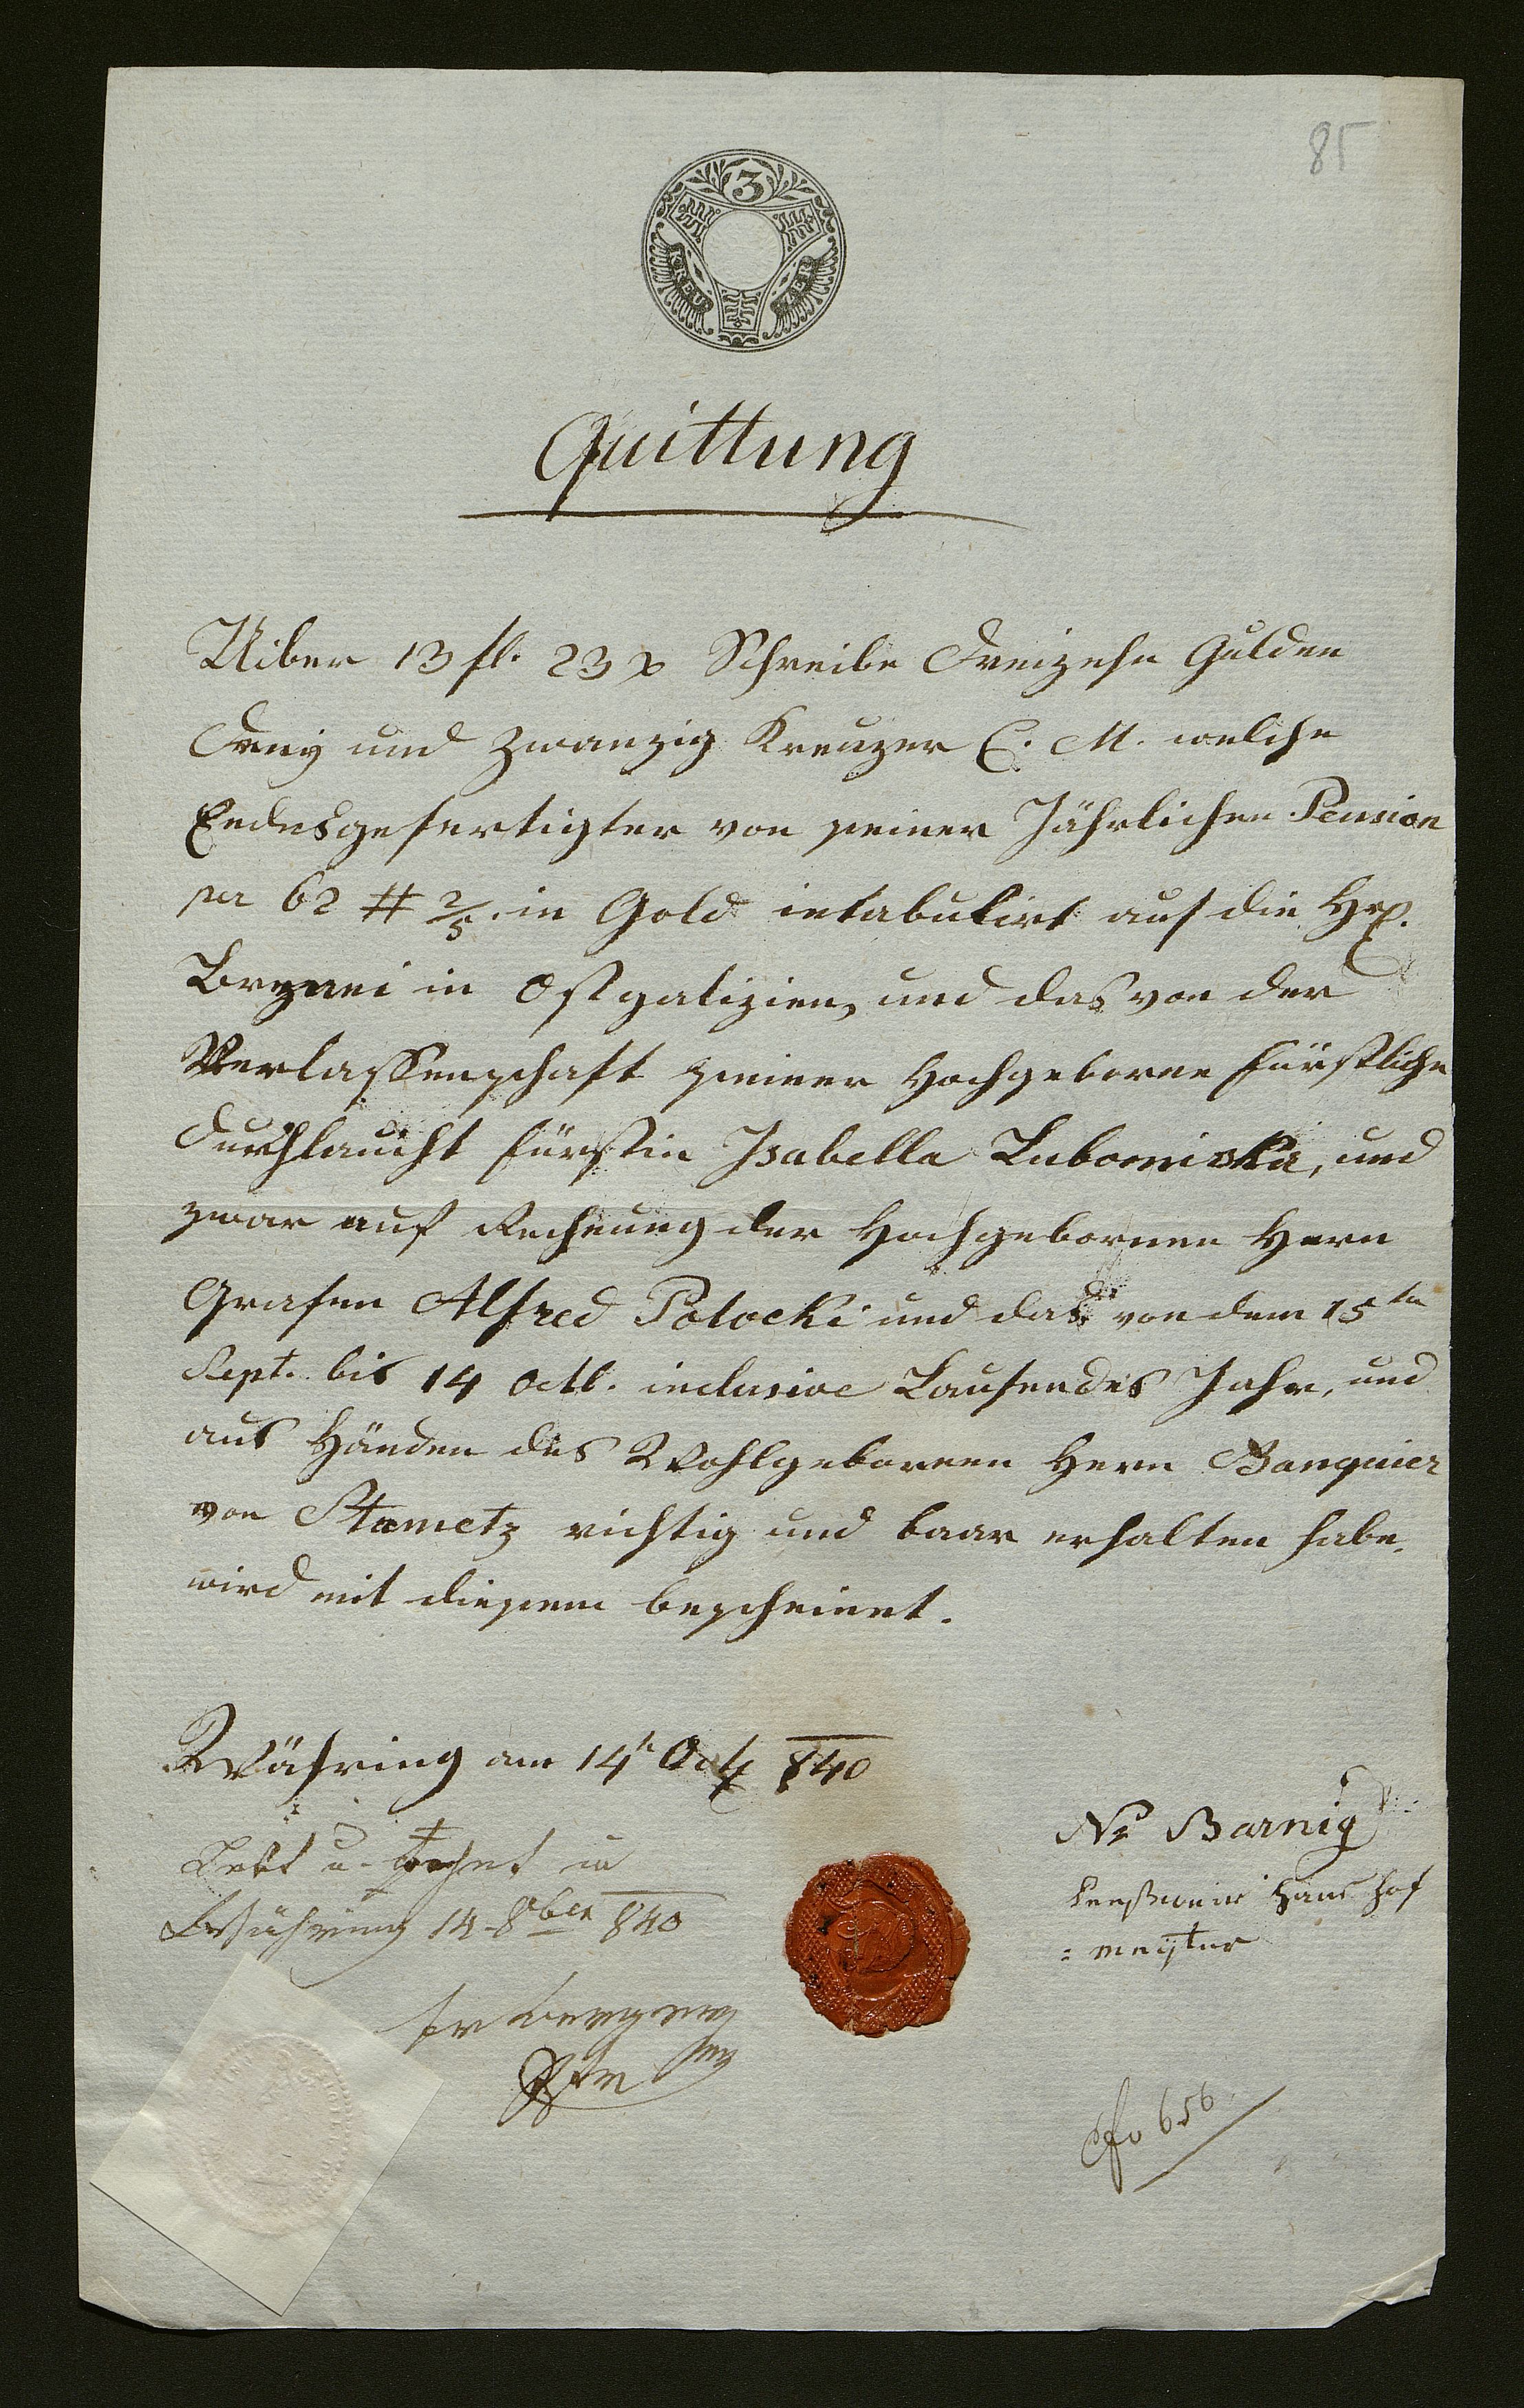 85
3
KREU ZER
Quittung
Uiber 13 fl. 23 x Schreibe Dreizehn Gulden
Drey und Zwanzig Kreuzer C. M. welche
Endesgefertigter von seiner Jährlichen Pension
per 62 # 2/5 in Gold intabulirt auf die Hrs.
in Ostgalizien, und das von der
Verlassenschaft seiner Hochgeborne fürstliche
Durchlaucht fürstin Isabella Lubomirska, und
zwar auf Rechnung der Hochgebornen Herrn
Grafen Alfred Potocki und das von dem 15ten
Sept. bis 14 Octb. inclusive Laufendes Jahr, und
aus Händen des Wohlgebornen Herrn Banquier
von Stametz richtig und baar erhalten habe.
wird mit diesem bescheinet.
Währing am 14t Oct 840
Lebt u. wohnt in
Währing 14 8ber 840
Barnig
Haus hof
= meister
fo 656